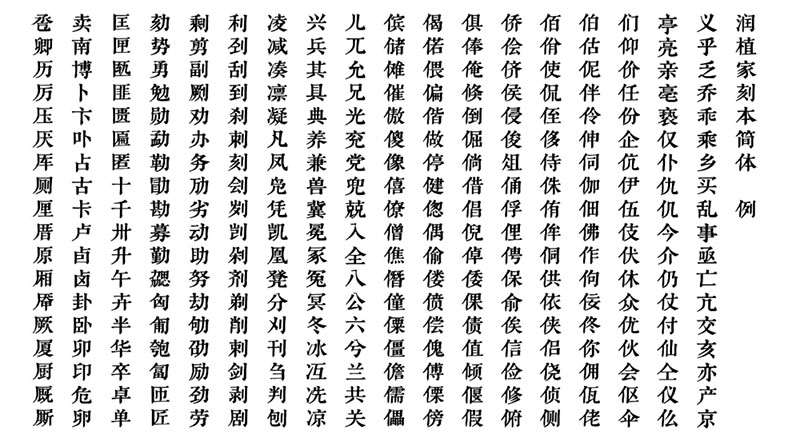 润植家刻本简体 例
义乎乏乔乖乘乡买乱事亟亡亢交亥亦产京
亭亮亲亳亵仅仆仇仉今介仍仗付仙仝仪仫
们仰价任份企伉伊伍伎伏休众优伙会伛伞
伯估伲伴伶伸伺伽佃佛作佝佞佟你佣佤佬
佰佾使侃侄侈侍侏侑侔侗供依侠侣侥侦侧
侨侩侪侯侵俊俎俑俘俚俜保俞俟信俭修俯
俱俸俺倏倒倔倘借倡倪倬倭倮债值倾偃假
偈偌偎偏偕做停健偬偶偷偻偾偿傀傅傈傍
傧储傩催傲傻像僖僚僧僬僭僮僳僵儋儒儡
儿兀允兄光兖党兜兢入全八公六兮兰共关
兴兵其具典养兼兽冀冕冢冤冥冬冰冱冼凉
凌减凑凛凝凡凤凫凭凯凰凳分刈刊刍判刨
利刭刮到刹刺刻刽刿剀剁剂剃削剌剑剥剧
剩剪副劂劝办务劢劣动助努劫劬劭励劲劳
劾势勇勉勋勐勒勖勘募勤勰匈匍匏匐匝匠
匡匣匦匪匮匾匿十千卅升午卉半华卒卓单
卖南博卜卞卟占古卡卢卣卤卦卧卯印危卵
卺卿历厉压厌厍厕厘厝原厢厣厥厦厨厩厮